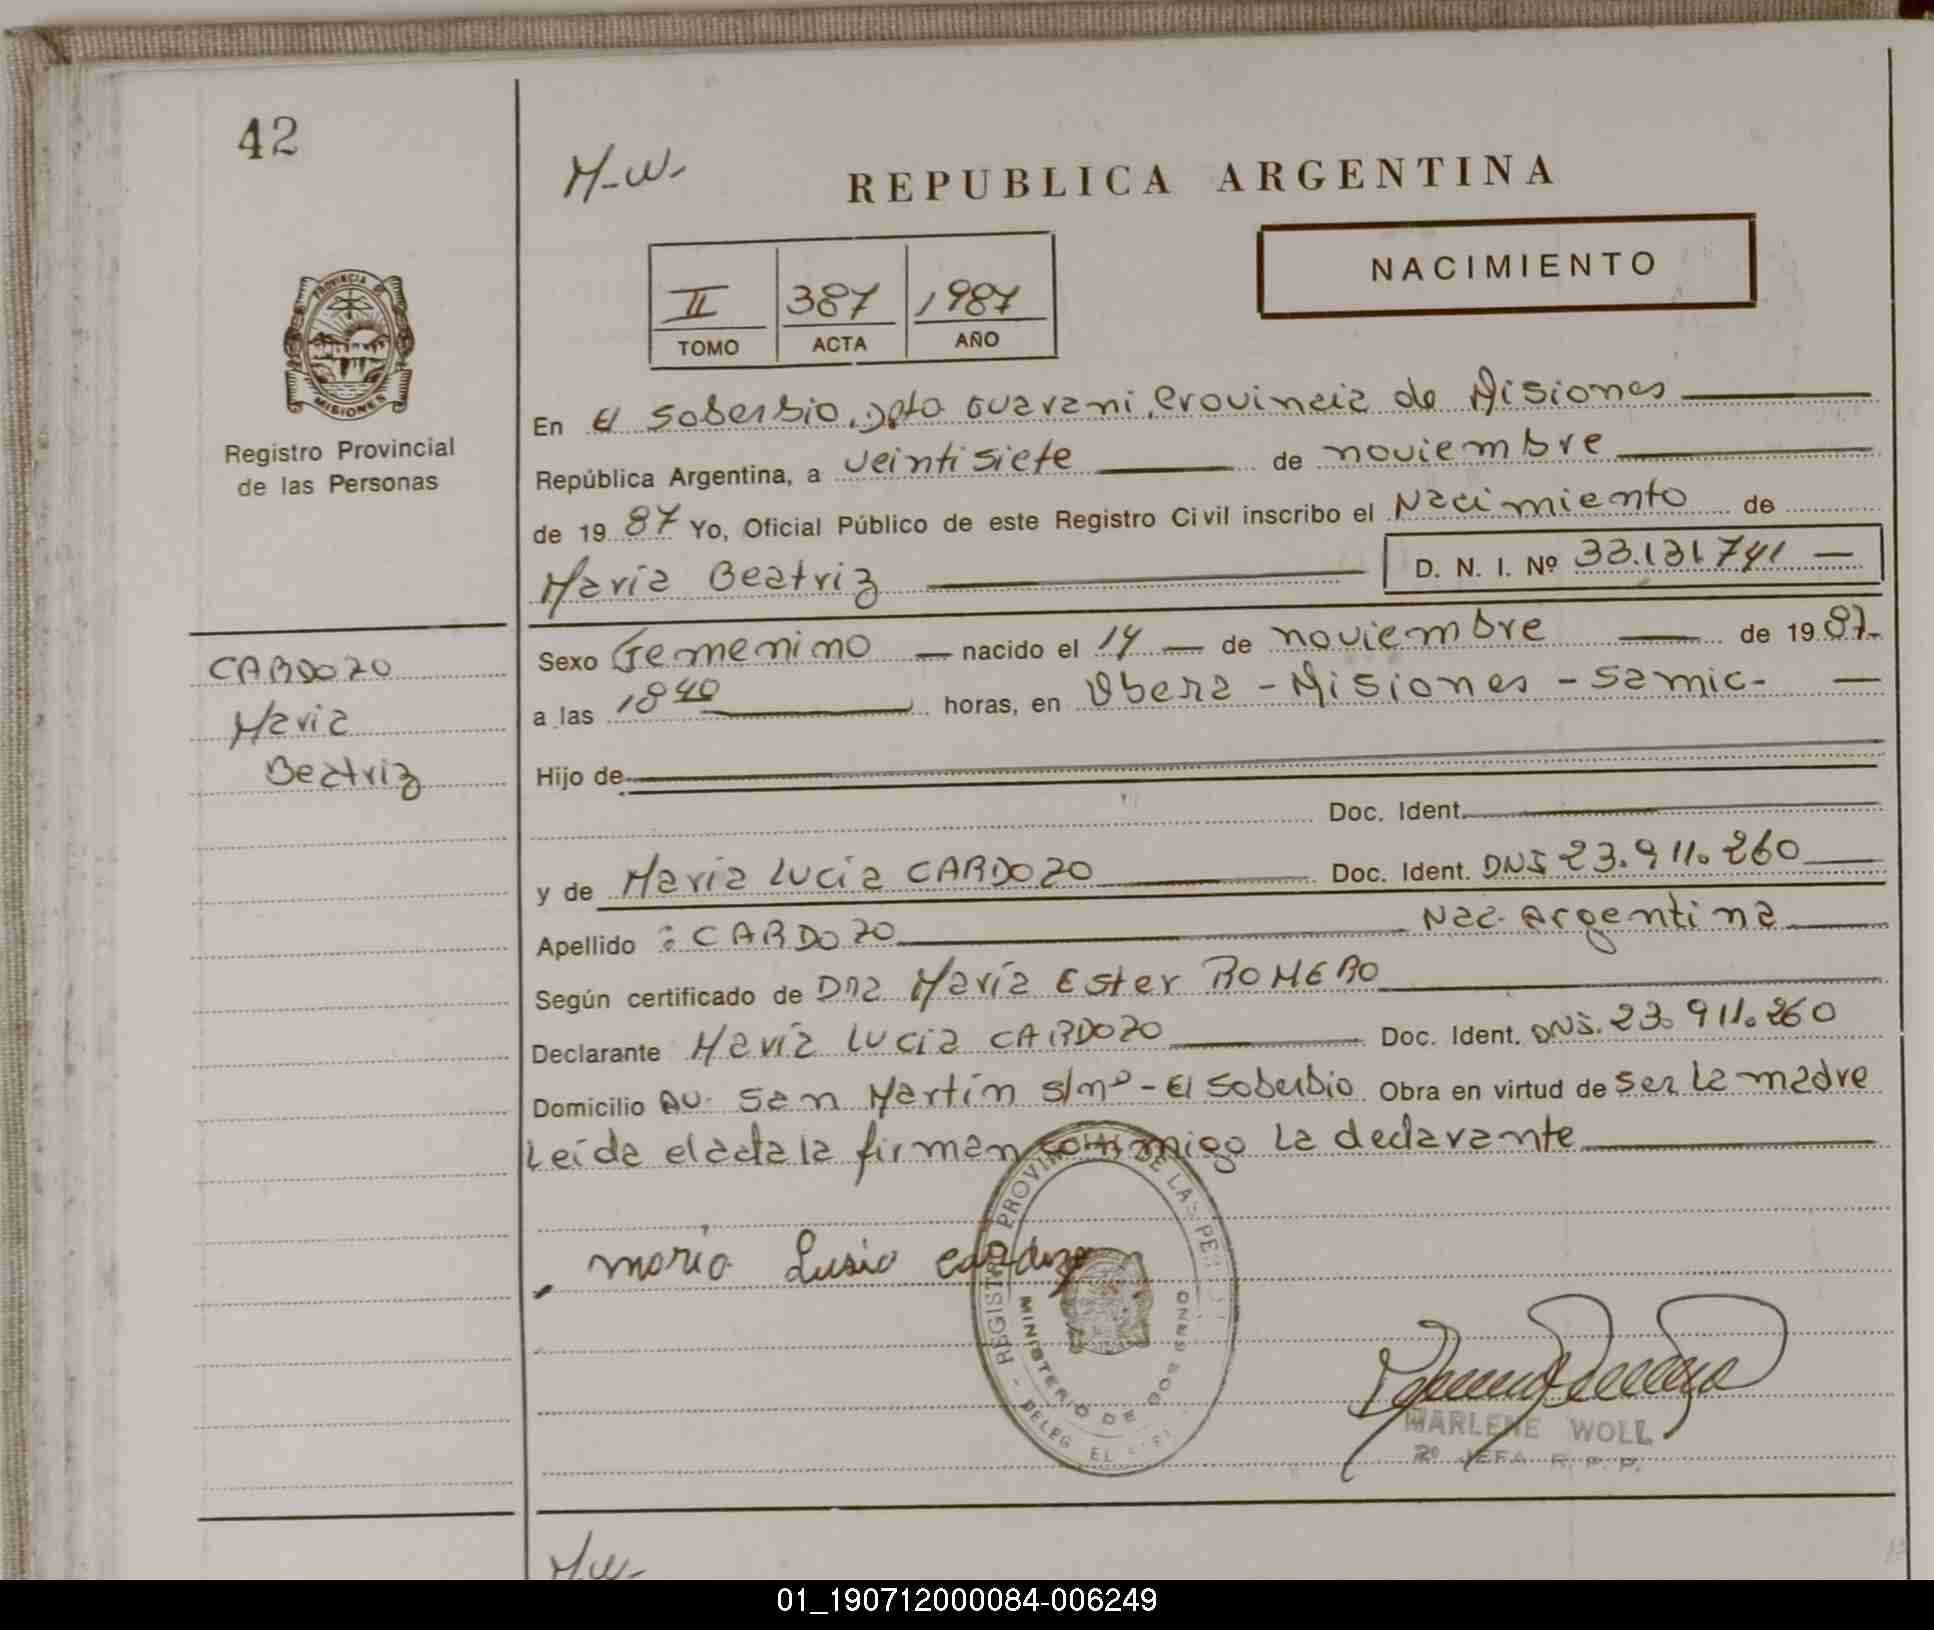 42
M-W-
REPUBLICA ARGENTINA
II 387 1987
TOMO ACTA AÑO
NACIMIENTO
PROVINCIA DE
MISIONES
Registro Provincial
de las Personas
CARDOZO
Maria
Beatriz
En El Soberbio, Dpto Guarani, Provincia de Misiones
República Argentina, a veintisiete de noviembre
de 1987 Yo, Oficial Público de este Registro Civil inscribo el Nacimiento de
María Beatriz D. N. I. Nº 33.131.741
Sexo Femenino nacido el 14 de noviembre de 1987-
a las 18 40 horas, en Obera - Misiones - Samic-
Hijo de
Doc. Ident.
y de María Lucía CARDOZO Doc. Ident. DNI 23.911.260
Apellido : CARDOZO Nac. Argentina
Según certificado de Dra María Ester ROMERO
Declarante María Lucía CARDOZO Doc. Ident. DNI. 23.911.260
Domicilio Av. San Martín s/nº - El Soberbio Obra en virtud de ser la madre
Leída el acta la firman conmigo la declarante
maria Lusia cardozo
REGISTRO PROVINCIAL DE LAS PE
MINISTERIO DE GOBIERNO
DELEG. EL
MARLENE WOLL
2º JEFA R. P. P.
M.W-
01_190712000084-006249